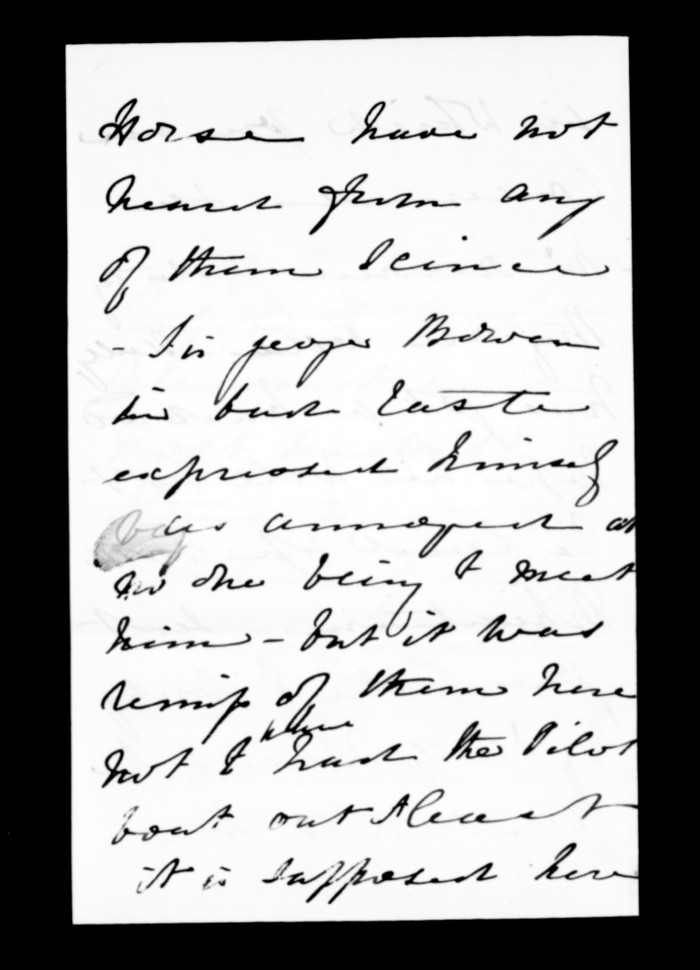 Horse have not
heard from any
of them Scince
- Sir george Bowen
in bad taste
expressed himself
as annoyed at
no one being to meet
him - but it was
remiss of them here
not to have had the Pilot
boat out At least
it is supposed here